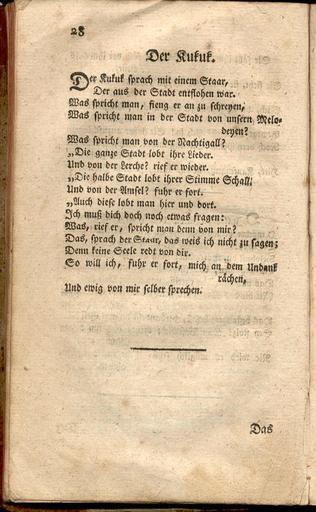 28
Der Kukuk.
Der Kukuk sprach mit einem Staar,
Der aus der Stadt entflohen war.
Was spricht man, fieng er an zu schreyen,
Was spricht man in der Stadt von unsern Melo-
deyen?
Was spricht man von der Nachtigall?
„Die ganze Stadt lobt ihre Lieder.
Und von der Lerche? rief er wieder.
„Die halbe Stadt lobt ihrer Stimme Schall.
Und von der Amsel? fuhr er fort.
„Auch diese lobt man hier und dort.
Ich muß dich doch noch etwas fragen:
Was, rief er, spricht man denn von mir?
Das, sprach der Staar, das weis ich nicht zu sagen;
Denn keine Seele redt von dir.
So will ich, fuhr er fort, mich an dem Undank
rächen,
Und ewig von mir selber sprechen.
Das